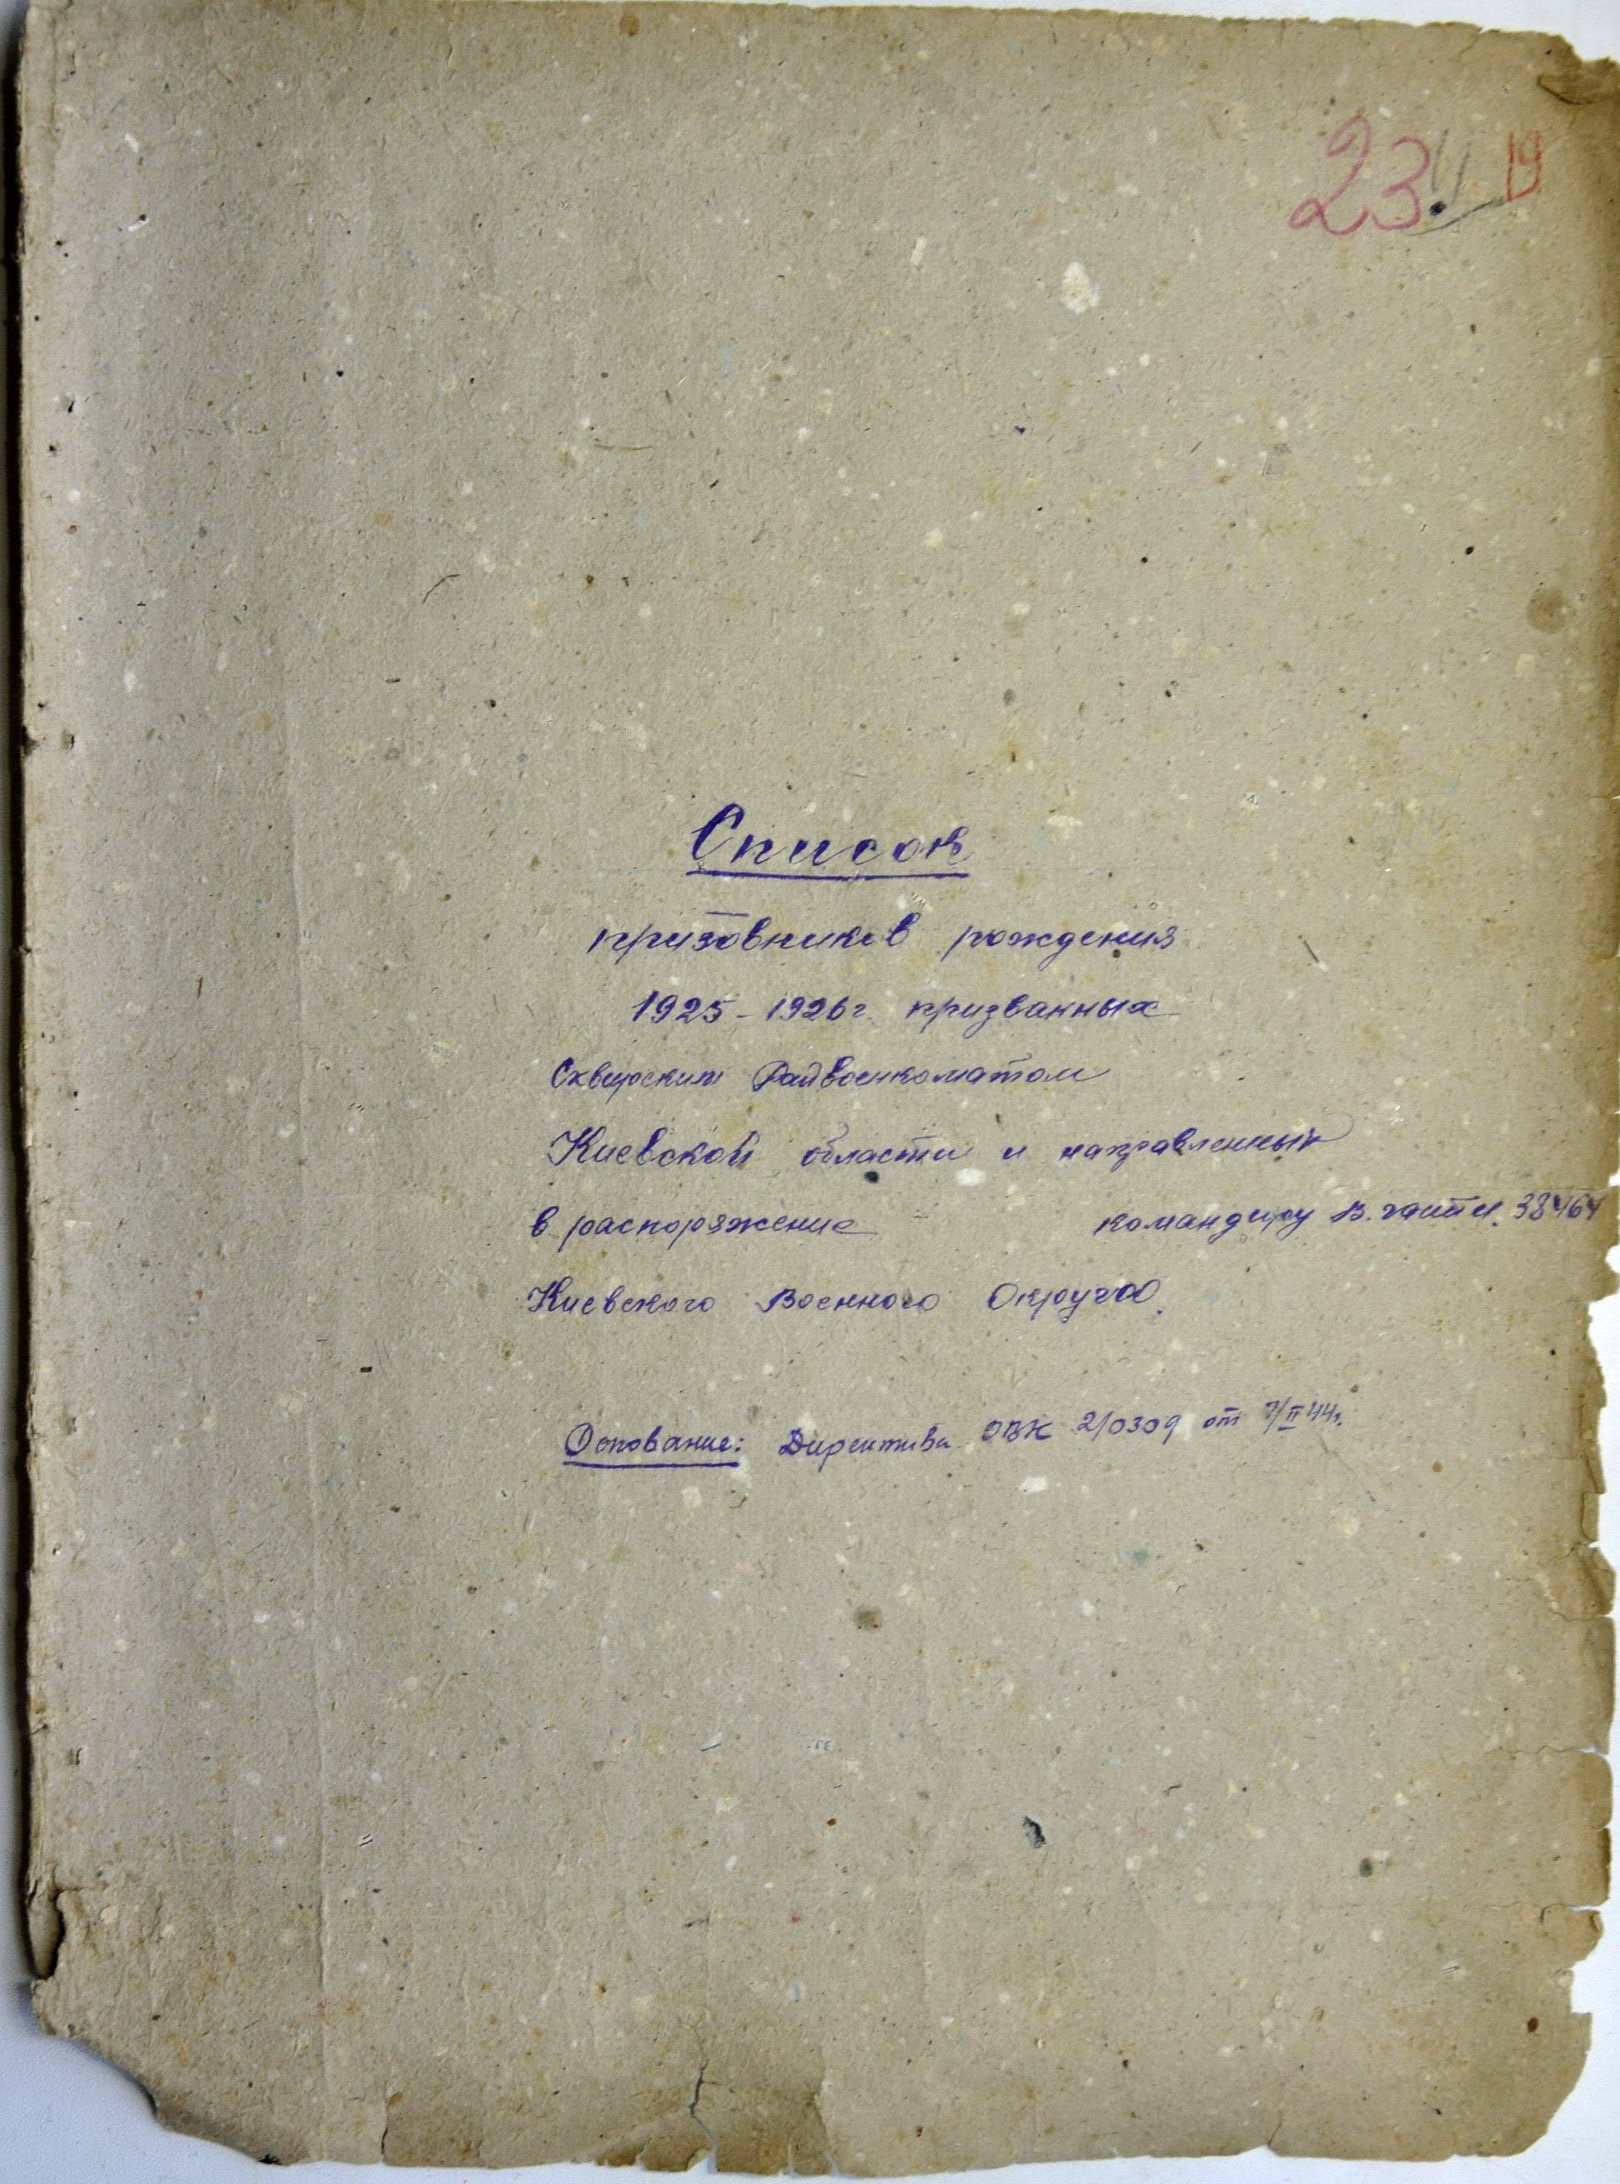 23. 19
Список
призовников рождения
1925-1926г. призванных
Сквирским Райвоенкоматом
Киевской области и направленных
в распоряжение командиру В. части. 38464
Киевского Военного Округа.
Основание: Директива ОВК 2/0309 от 7/II 44г.